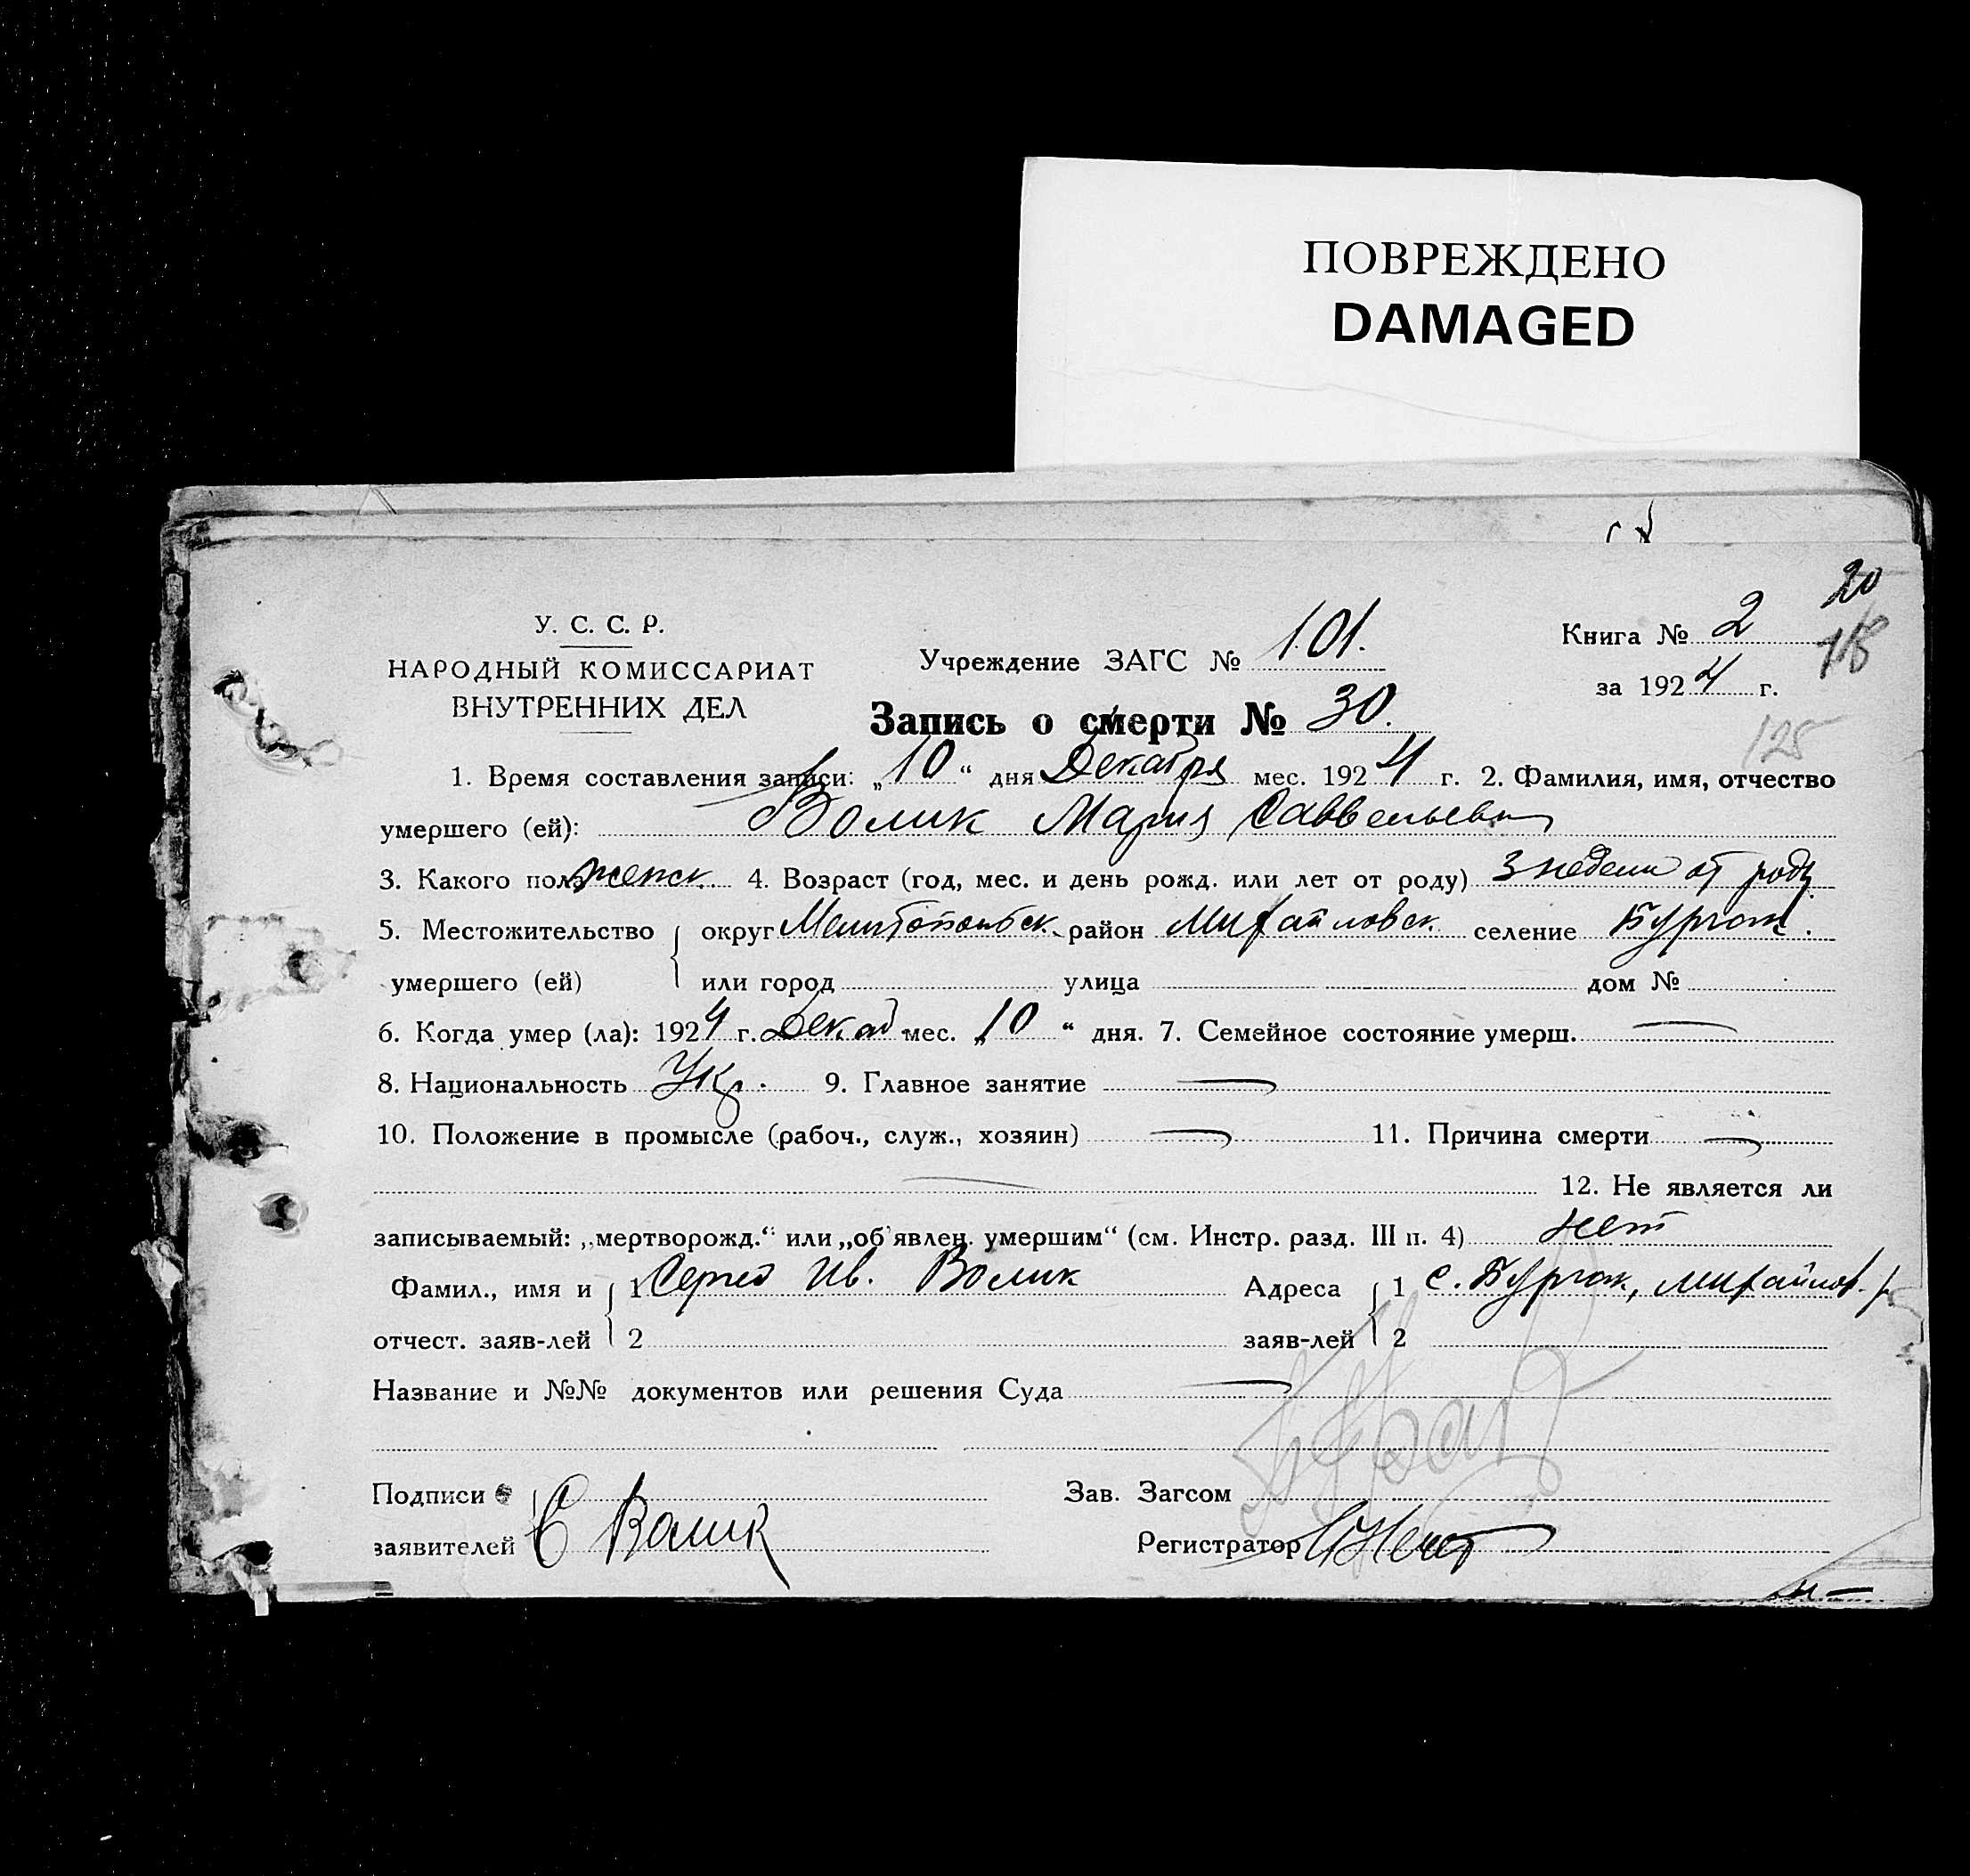 ПОВРЕЖДЕНО
DAMAGED
20
У. С. С. Р.
НАРОДНЫЙ КОМИССАРИАТ
ВНУТРЕННИХ ДЕЛ
Учреждение ЗАГС № 101.
Книга № 2
за 1924 г.
18
Запись о смерти № 30.
125
1. Время составления записи: „10“ дня Декабря мес. 1924 г. 2. Фамилия, имя, отчество
умершего (ей): Волик Мария Саввельевн
3. Какого пола женск. 4. Возраст (год, мес. и день рожд. или лет от роду) 3 недели от роду.
5. Местожительство округ Мелитопольск. район Михайловск. селение Бургок.
умершего (ей) или город улица дом №
6. Когда умер (ла): 1924 г. Декаб мес. „10“ дня. 7. Семейное состояние умерш. —
8. Национальность Укр. 9. Главное занятие —
10. Положение в промысле (рабоч., служ., хозяин) — 11. Причина смерти —
12. Не является ли
записываемый: „мертворожд.“ или „об'явлен. умершим“ (см. Инстр. разд. III п. 4) нет
Фамил., имя и 1 Сергей Ив. Волик Адреса 1 с. Бургок, Михайлов. р
отчест. заяв-лей 2 заяв-лей 2
Название и №№ документов или решения Суда —
Подписи Зав. Загсом
заявителей С Волик Регистратор